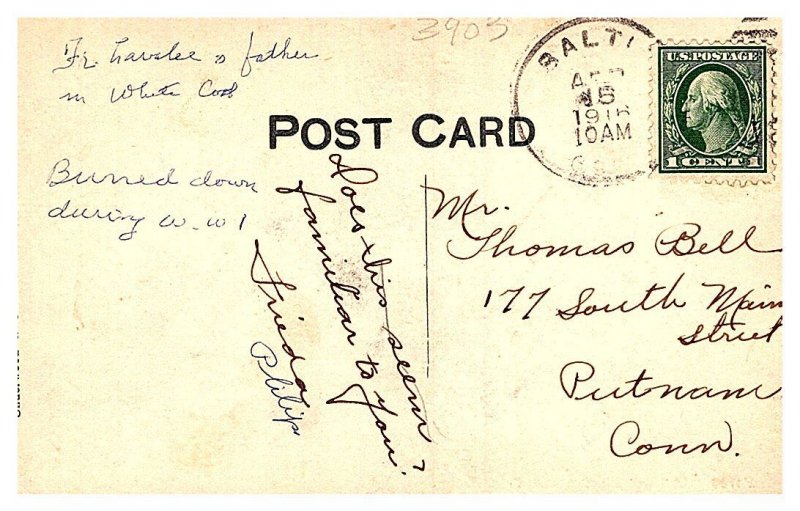 3905
father
in White Coat
BALTI
15
1916
10AM
U.S. POSTAGE
1 CENT 1
POST CARD
Burned down
during W.W1
Does this seem
familiar to you?
Frieda
Philip
Mr.
Thomas Bell
177 South Main
Street
Putnam
Conn.